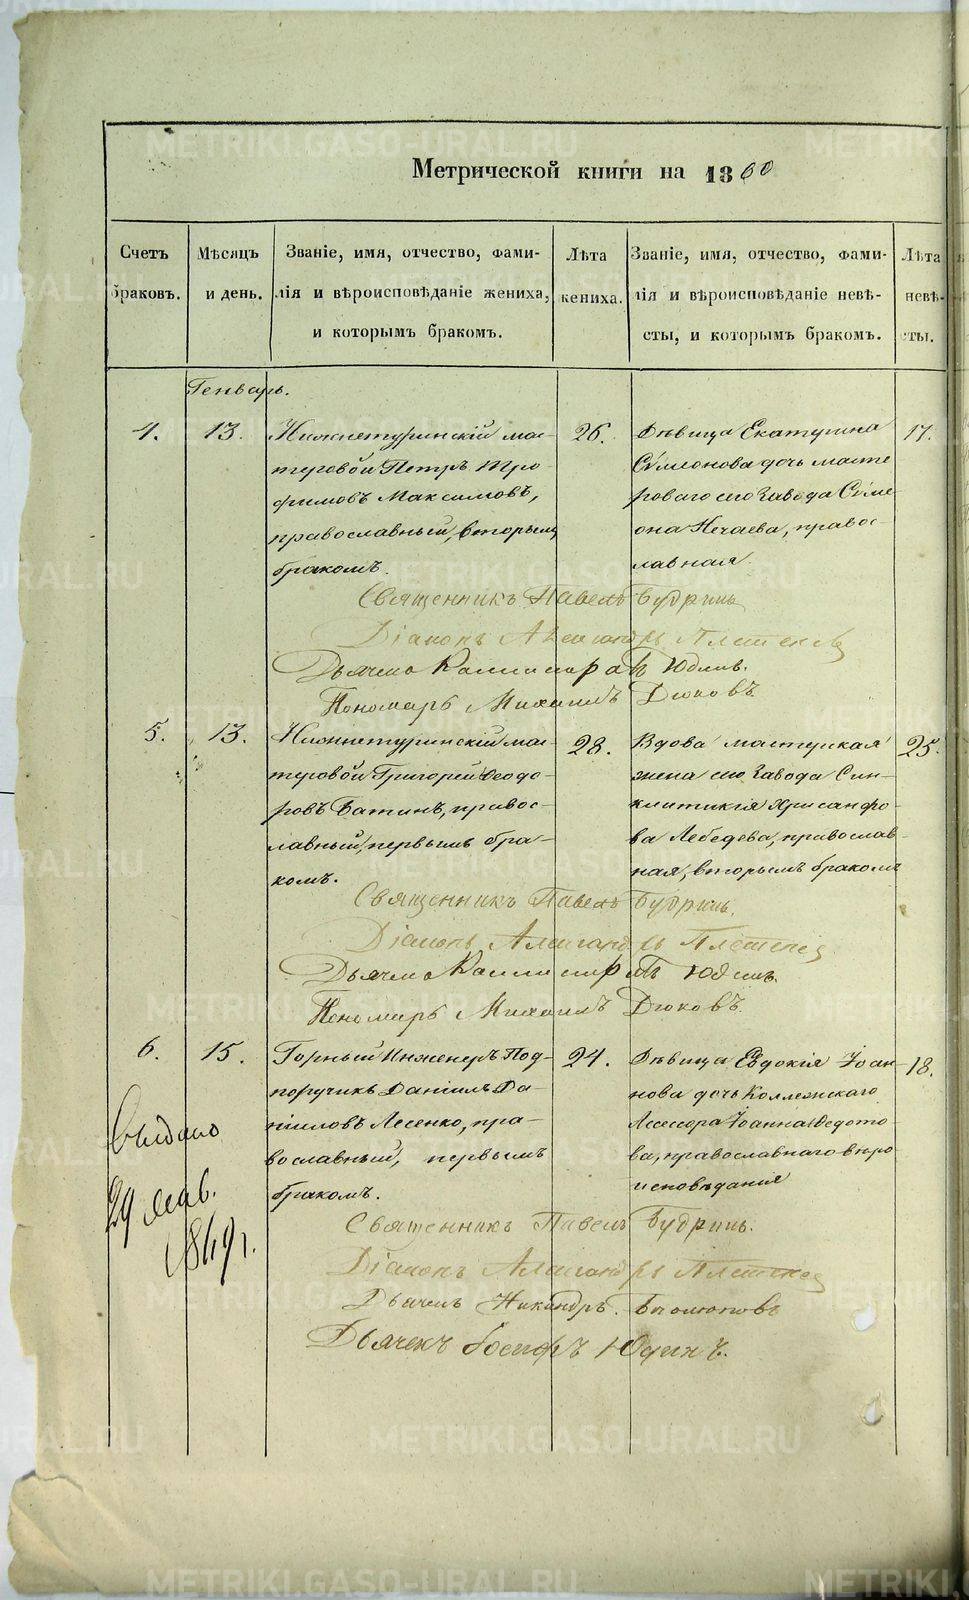 Метрической книги на 1860
Счетъ браковъ.
Мѣсяцъ и день.
Званіе, имя, отчество, фами-
лія и вѣроисповѣданіе жениха,
и которымъ бракомъ.
Лѣта
жениха.
Званіе, имя, отчество, фами-
лія и вѣроисповѣданіе невѣ-
сты, и которымъ бракомъ.
Лѣта
невѣ-
сты.
Генварь.
4.
13.
Нижнетуринскій мас-
теровой Петръ Тро-
фимовъ Максимовъ,
православный, вторымъ
бракомъ.
26.
Дѣвица Екатерина
Сѵмеонова дочь масте
роваго сего завода Сѵме
она Нечаева, правос-
лавная
17.
Священникъ Павелъ Будринъ
Діаконъ Александръ
Дьячекъ Юдинъ.
Пономарь Михаилъ Дюковъ
5.
13.
Нижнетуринскій мас-
теровой Григорій Ѳеодо-
ровъ Батинъ, правос-
лавный, первымъ бра-
комъ.
28.
Вдова мастерская
жена сего завода Син-
клитикія Хрисанфо-
ва Лебедева, православ-
ная, вторымъ бракомъ
25.
Священникъ Павелъ Будринъ.
Діаконъ Александръ
Дьячекъ Юдинъ.
Пономарь Михаилъ Дюковъ.
6.
15.
Горный Инженеръ Под-
поручикъ Даніилъ Да-
ніиловъ Лесенко, пра-
вославный, первымъ
бракомъ.
24.
Дѣвица Евдокія Іоан-
нова дочь Коллежскаго
Ассессора Іоанна Ѳедото-
ва, православнаго вѣро
исповѣданія
18.
Выдано
29 янв.
1869 г.
Священникъ Павелъ Будринъ.
Діаконъ Александръ
Дьячекъ Никандръ
Дьячекъ Іосифъ Юдинъ.
METRIKI.GASO-URAL.RU